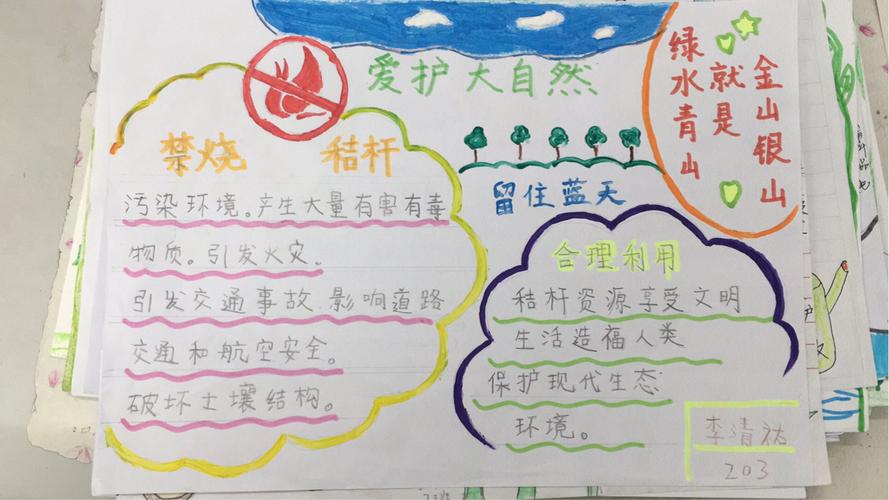 爱护大自然
绿水青山
就是
金山银山
禁烧 秸杆
污染环境。产生大量有害有毒
物质。引发火灾。
引发交通事故 影响道路
交通和航空安全。
破坏土壤结构。
留住蓝天
合理利用
秸杆资源享受文明
生活造福人类
保护现代生态
环境。
李清祐
203